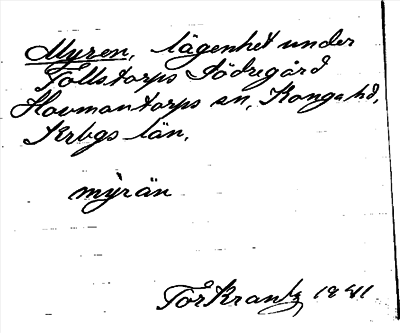 Myren, lägenhet under
Tollstorps Södregård
Hovmantorps sn, Konga hd,
Krbgs län.
mỳrän
Tor Krantz 1941